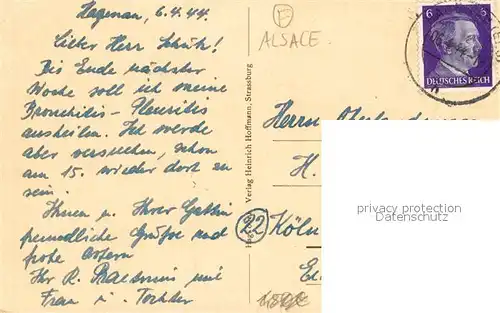 Hagenau, 6.4.44.
Lieber Herr Schütz!
Bis Ende nächster
Woche soll ich meine
Bronchitis-Pleuritis
ausheilen. Ich werde
aber versuchen, schon
am 15. wieder dort zu
sein.
Ihnen u. Ihrer Gattin
freundliche Grüße und
frohe Ostern
Ihr R. mit
Frau u. Tochter
F
ALSACE.
Verlag Heinrich Hoffmann, Strassburg
6 6
DEUTSCHES REICH
Herrn
H.
22 Köln
privacy protection
Datenschutz